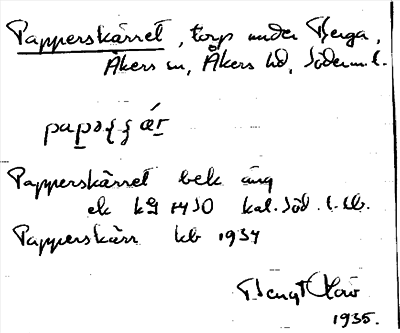 Papperskärret, torp under Berga,
Åkers sn, Åkers hd, Söderm. l.
Papperskärret bek äng
ek kg 1450 kal. Söd. l. sb.
Papperskärr kb 1934
Bengt
1935.